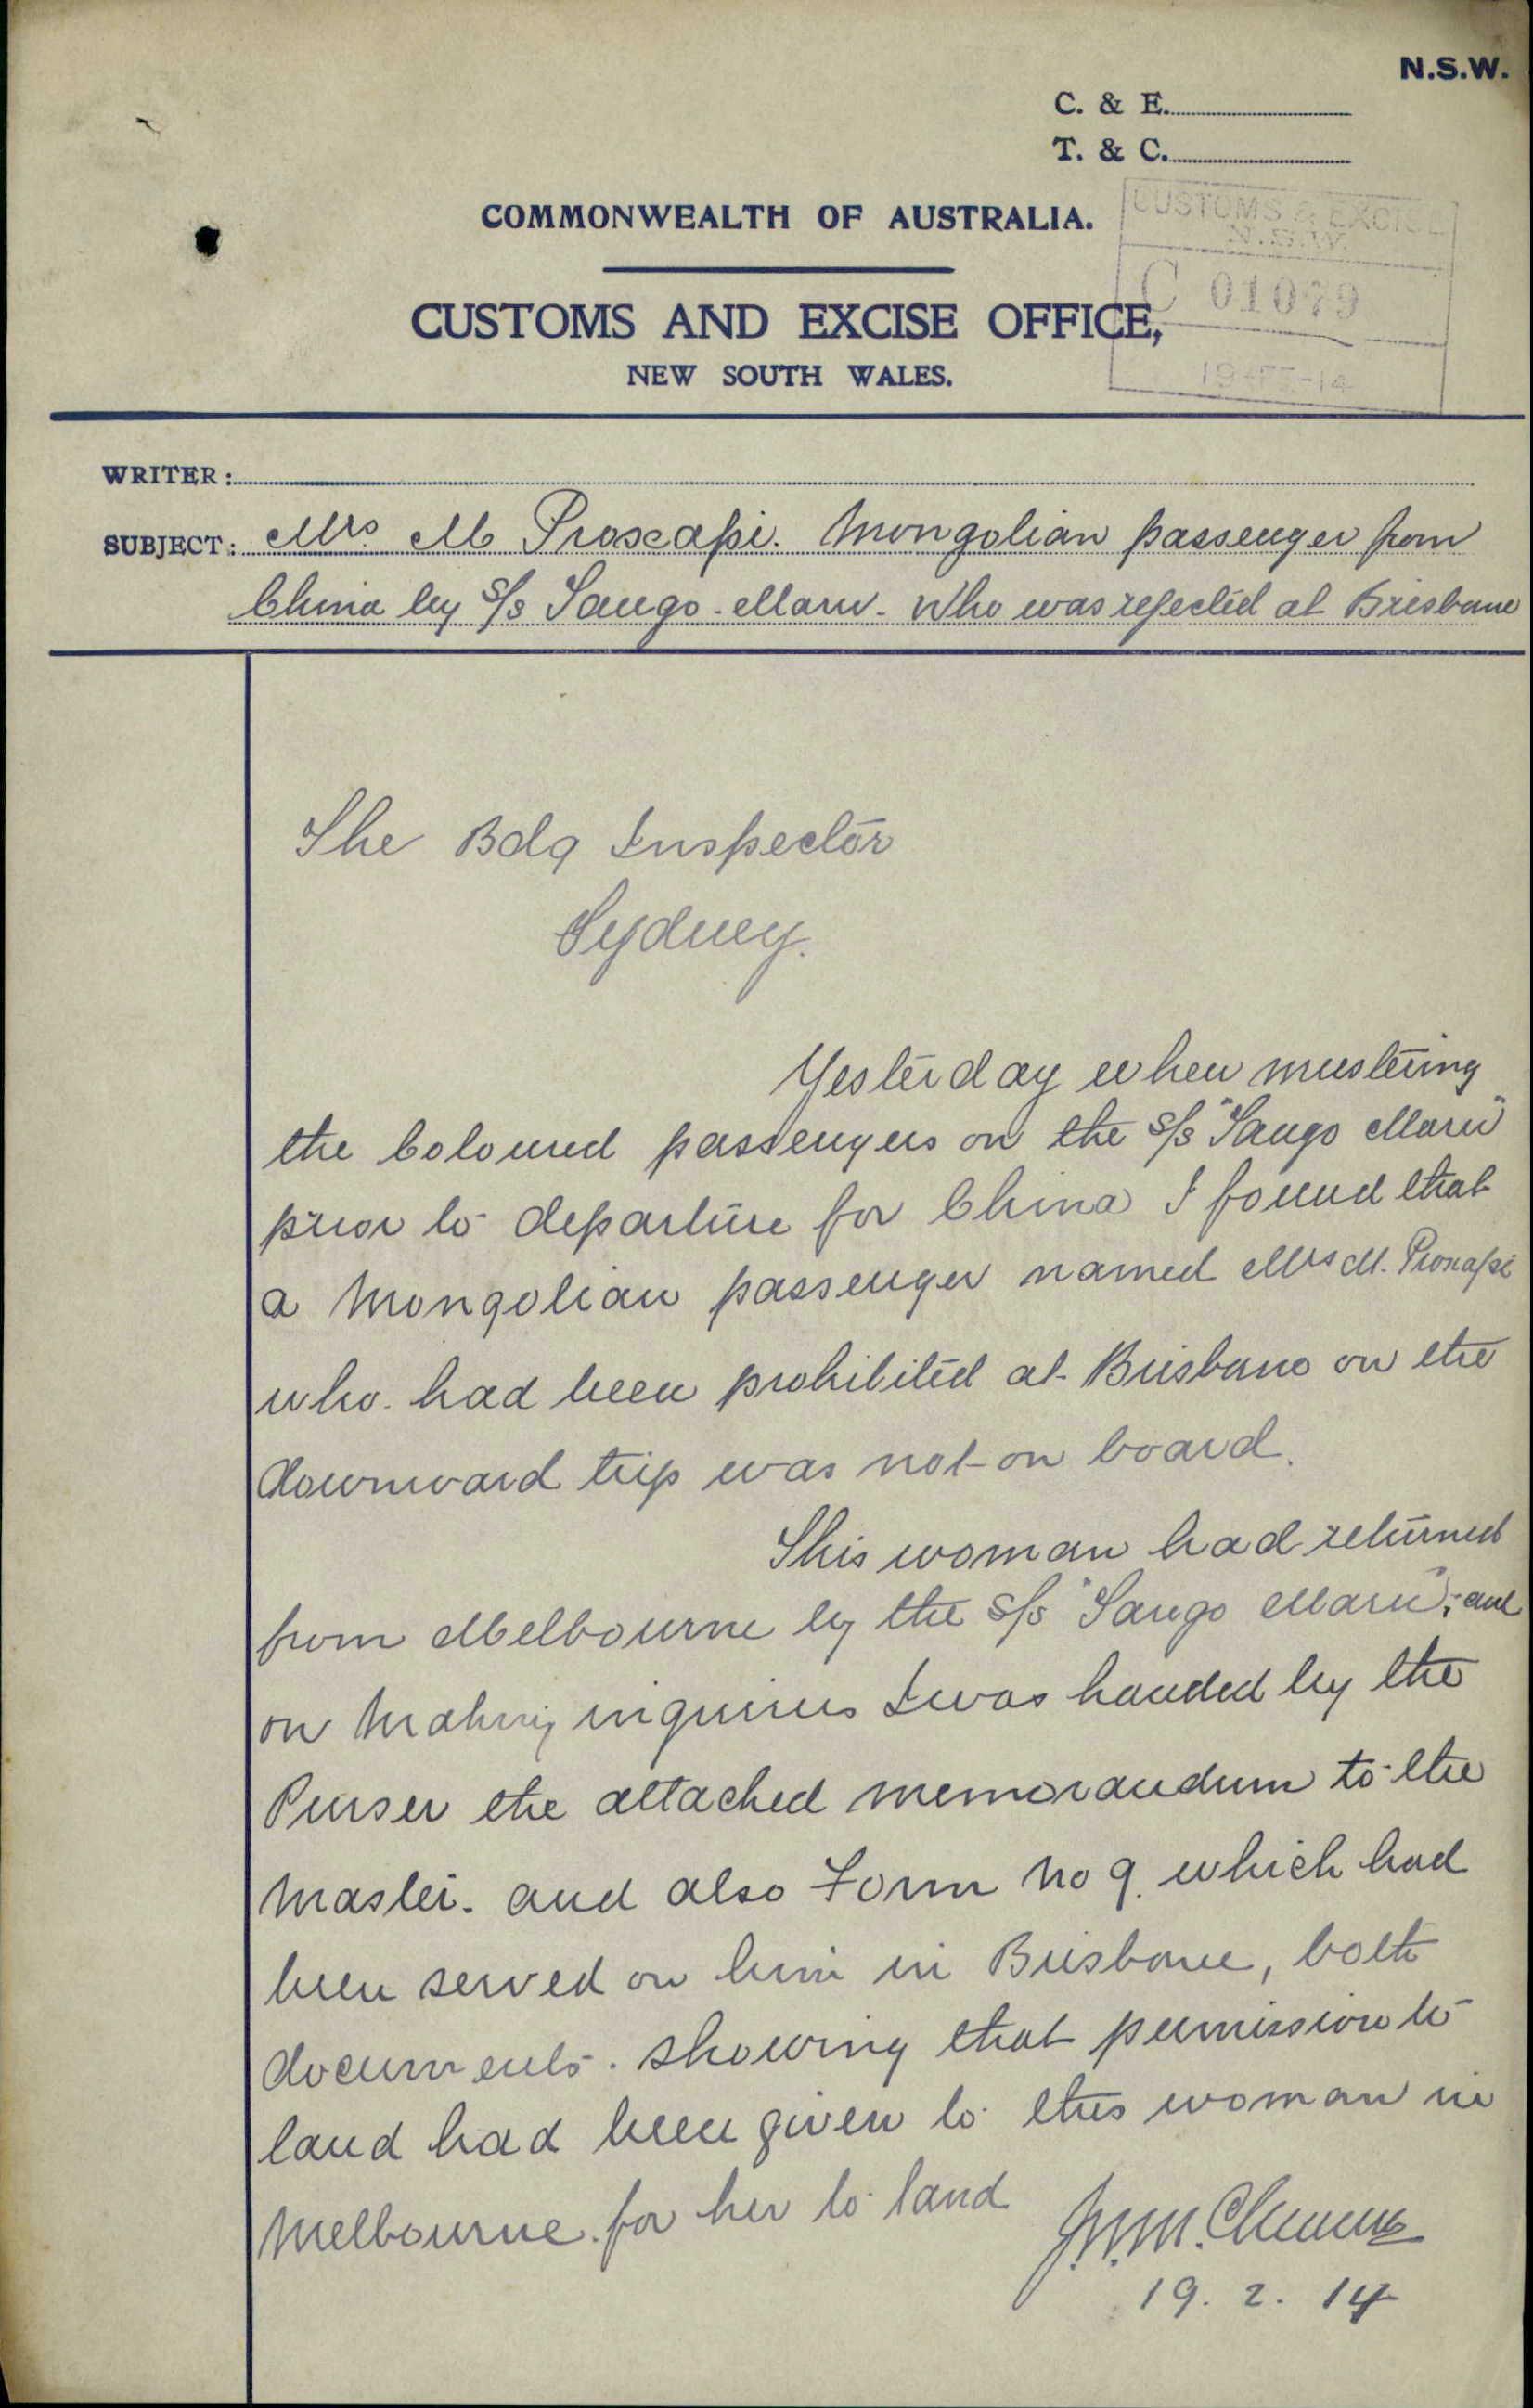 N.S.W.
C. & E.
T. & C.
COMMONWEALTH OF AUSTRALIA.
CUSTOMS & EXCISE
N.S.W.
C 01079
19-FE-14
CUSTOMS AND EXCISE OFFICE,
NEW SOUTH WALES.
WRITER:
SUBJECT: Mrs M Proscapi. Mongolian passenger from
China by S/s Tango-Maru. Who was rejected at Brisbane
The Bdg Inspector
Sydney.
Yesterday when mustering
the Coloured passengers on the S/s "Tango Maru"
prior to departure for China I found that
a Mongolian passenger named Mrs M.
who had been prohibited at Brisbane on the
downward trip was not on board.
This woman had returned
from Melbourne by the S/s "Tango Maru", and
on making inquiries I was handed by the
Purser the attached memorandum to the
Master. and also Form No 9. which had
been served on him in Brisbane, both
documents. showing that permission to
land had been given to this woman in
Melbourne. for her to land
19. 2. 14